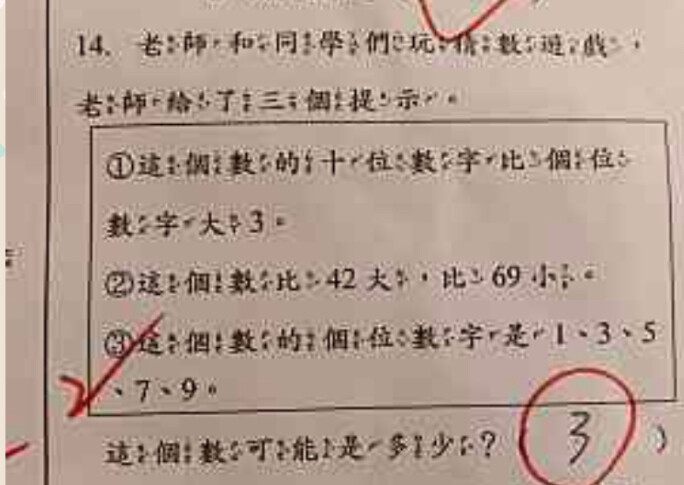 14. 老師和同學們玩猜數遊戲，
老師給了三個提示。
①這個數的十位數字比個位
數字大3。
②這個數比42大，比69小。
③這個數的個位數字是1、3、5
、7、9。
這個數可能是多少？( 3 )